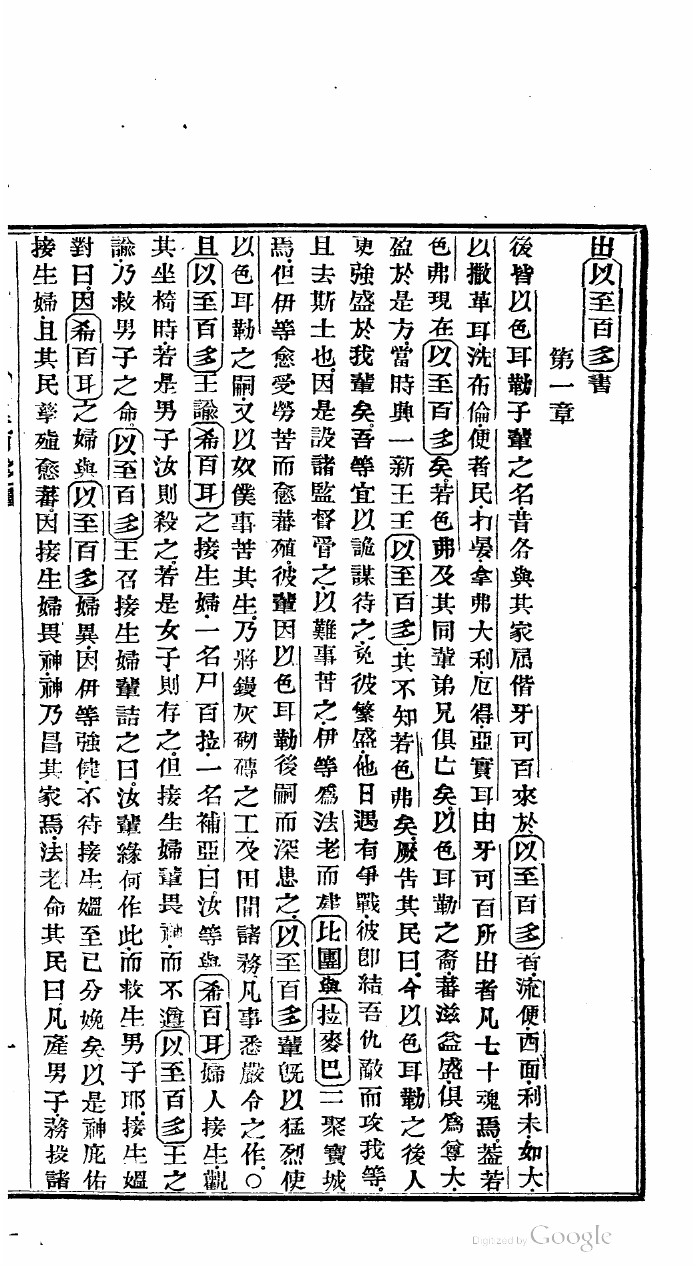 出以至百多書
第一章
後皆以色耳勒子輩之名昔各與其家屬偕牙可百來於以至百多者流便西面利未如大
以撒革耳洗布倫便者民力晏拿弗大利厄得亞實耳由牙可百所出者凡七十魂焉葢若
色弗現在以至百多矣若色弗及其同輩弟兄俱亡矣以色耳勒之裔蕃滋益盛俱為尊大
盈於是方當時興一新王王以至百多其不知若色弗矣厥告其民曰今以色耳勒之後人
更強盛於我輩矣吾等宜以詭謀待之免彼繁盛他日遇有爭戰彼卽結吾仇敵而攻我等
且去斯土也因是設諸監督管之以難事苦之伊等為法老而建比團與拉麥巴二聚寶城
焉但伊等愈受勞苦而愈蕃殖彼輩因以色耳勒後嗣而深患之以至百多輩旣以猛烈使
以色耳勒之嗣又以奴僕事苦其生乃將鏝灰砌磚之工及田間諸務凡事悉嚴令之作○
且以至百多王諭希百耳之接生婦一名尸百拉一名補亞曰汝等與希百耳婦人接生觀
其坐椅時若是男子汝則殺之若是女子則存之但接生婦輩畏神而不遵以至百多王之
諭乃救男子之命以至百多王召接生婦輩詰之曰汝輩緣何作此而救生男子耶接生媼
對曰因希百耳之婦與以至百多婦異因伊等強健不待接生媼至已分娩矣以是神庇佑
接生婦且其民孳殖愈蕃因接生婦畏神神乃昌其家焉法老命其民曰凡產男子務投諸
一
Digitized by Google